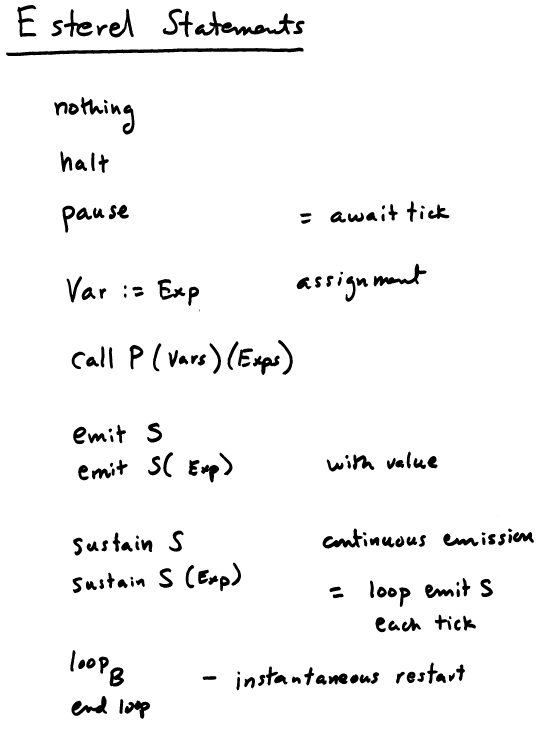 Esterel Statements
nothing
halt
pause = await tick
Var := Exp assignment
call P (Vars)(Exps)
emit S
emit S( Exp) with value
sustain S continuous emission
sustain S (Exp) = loop emit S
each tick
loop
B - instantaneous restart
end loop